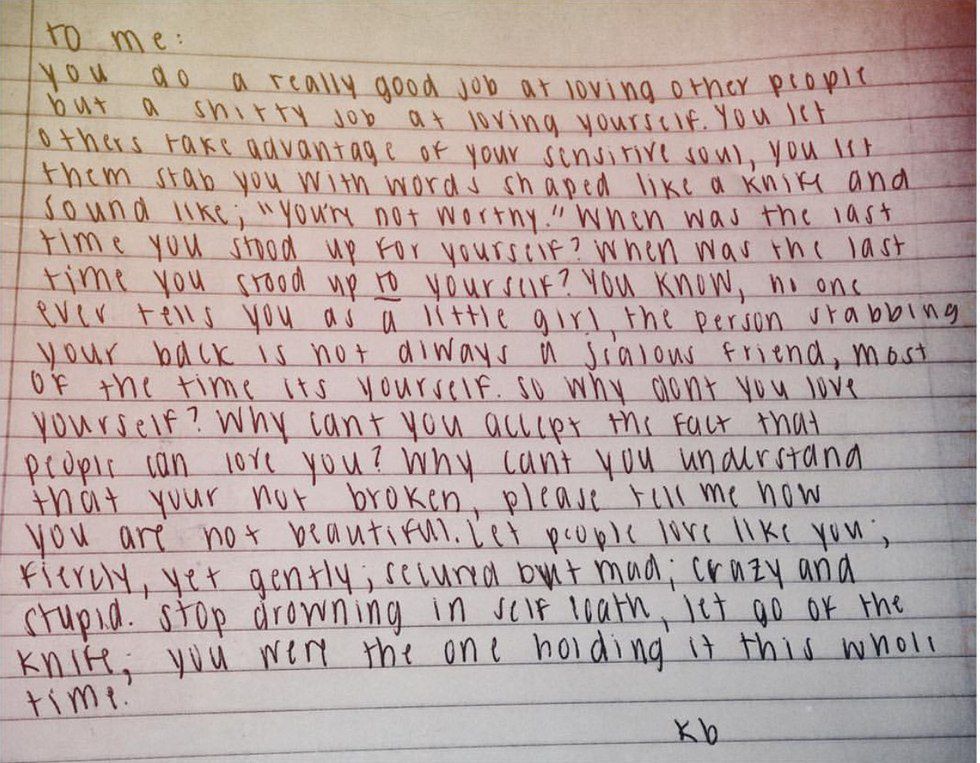 to me:
you do a really good job at loving other people
but a shitty job at loving yourself. You let
others take advantage of your sensitive soul, you let
them stab you with words shaped like a knife and
sound like; "you're not worthy." When was the last
time you stood up for yourself? When was the last
time you stood up to yourself? You know, no one
ever tells you as a little girl, the person stabbing
your back is not always a jealous friend, most
of the time its yourself. so why dont you love
yourself? Why cant you accept the fact that
people can love you? Why cant you understand
that your not broken, please tell me how
you are not beautiful. Let people love like you;
fiercly, yet gently; secured but mad; crazy and
stupid. stop drowning in self loath, let go of the
knife; you were the one holding it this whole
time.
kb